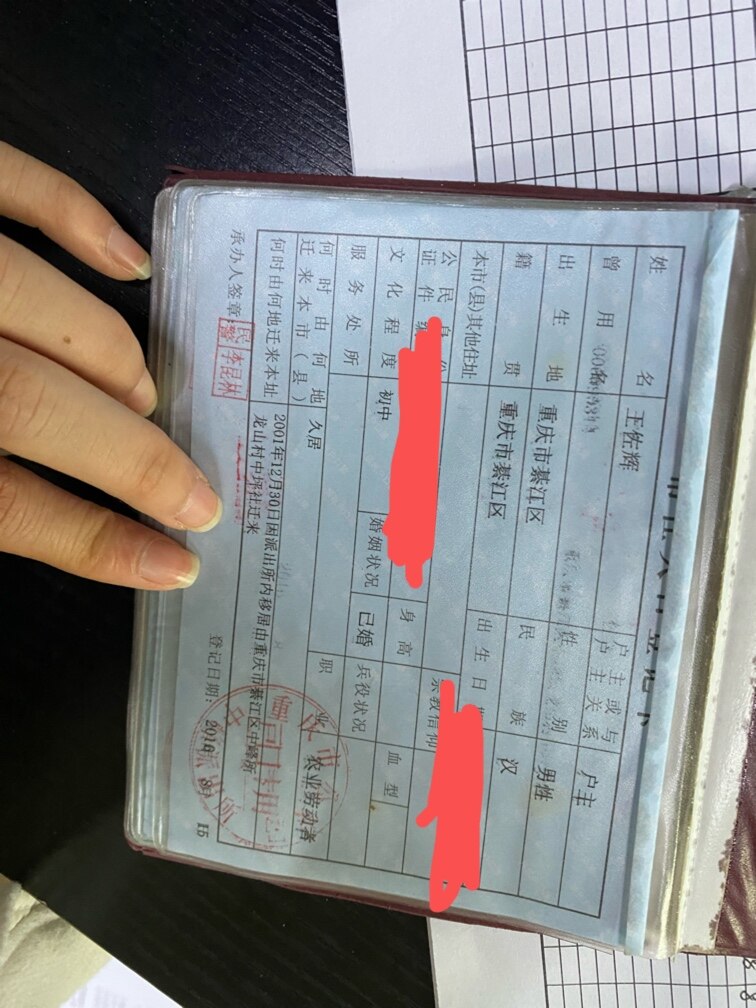 常住人口登记卡
姓 名 王佐辉 户主或与户主关系 户主
曾用名 性别 男性
出生地 重庆市綦江区 民族 汉
籍贯 重庆市綦江区 出生日
本市(县)其他住址 宗教信仰
公民 证件 身高 血型
文化程度 初中 婚姻状况 已婚 兵役状况
服务处所 职业 农业劳动者
何时由何地迁来本市(县) 久居
何时由何地迁来本址 2001年12月30日因派出所内移居由重庆市綦江区中峰所
龙山村中坪社迁来
承办人签章: 民警 李昆林 登记日期:
15